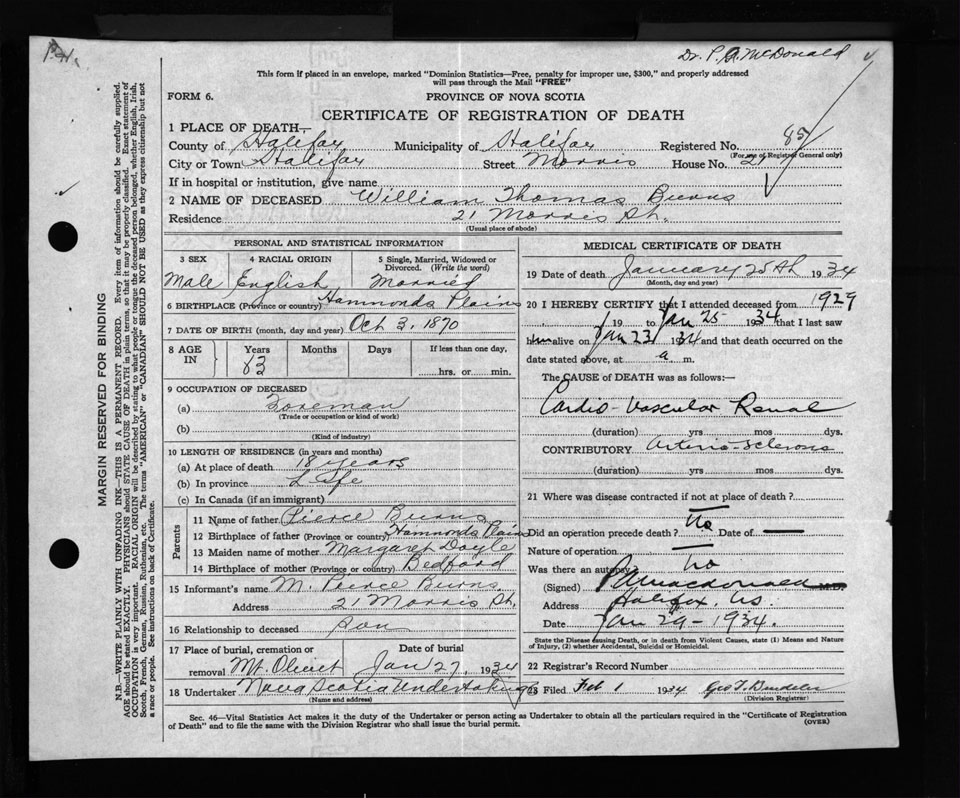 P.H.
Dr. P. A. McDonald
This form if placed in an envelope, marked "Dominion Statistics—Free, penalty for improper use, $300," and properly addressed
will pass through the Mail "FREE"
FORM 6.
PROVINCE OF NOVA SCOTIA
CERTIFICATE OF REGISTRATION OF DEATH
1 PLACE OF DEATH—
County of Halifax Municipality of Halifax Registered No. 85
(For use of Registrar General only)
City or Town Halifax Street Morris House No. 21
If in hospital or institution, give name
2 NAME OF DECEASED William Thomas Burns
Residence 21 Morris St.
(Usual place of abode)
PERSONAL AND STATISTICAL INFORMATION
3 SEX 4 RACIAL ORIGIN 5 Single, Married, Widowed or
Divorced. (Write the word)
Male English Married
6 BIRTHPLACE (Province or country) Hammonds Plains
7 DATE OF BIRTH (month, day and year) Oct 3, 1870
8 AGE IN Years Months Days If less than one day,
63 hrs. or min.
9 OCCUPATION OF DECEASED
(a) Foreman
(Trade or occupation or kind of work)
(b)
(Kind of industry)
10 LENGTH OF RESIDENCE (in years and months)
(a) At place of death 18 years
(b) In province Life
(c) In Canada (if an immigrant)
Parents
11 Name of father Pierce Burns
12 Birthplace of father (Province or country) Hammonds Plains
13 Maiden name of mother Margaret Doyle
14 Birthplace of mother (Province or country) Bedford
15 Informant's name M. Pierce Burns
Address 21 Morris St.
16 Relationship to deceased son
17 Place of burial, cremation or removal Mt. Olivet Date of burial Jan 27, 1934
18 Undertaker Nova Scotia Undertaking
(Name and address)
MEDICAL CERTIFICATE OF DEATH
19 Date of death January 25th 1934
(Month, day and year)
20 I HEREBY CERTIFY that I attended deceased from 1929
19 to Jan 25 1934 that I last saw
him alive on Jan 23 1934 and that death occurred on the
date stated above, at a. m.
The CAUSE of DEATH was as follows:—
Cardio-Vascular Renal
(duration) yrs mos dys.
CONTRIBUTORY arterio-sclerosis
(duration) yrs mos dys.
21 Where was disease contracted if not at place of death?
Did an operation precede death? No Date of —
Nature of operation —
Was there an autopsy? No
(Signed) P A Macdonald M.D.
Address Halifax, N.S.
Date Jan 29 - 1934.
State the Disease causing Death, or in death from Violent Causes, state (1) Means and Nature
of Injury, (2) whether Accidental, Suicidal or Homicidal.
22 Registrar's Record Number
23 Filed Feb 1 1934 Geo F
(Division Registrar)
Sec. 46—Vital Statistics Act makes it the duty of the Undertaker or person acting as Undertaker to obtain all the particulars required in the "Certificate of Registration
of Death" and to file the same with the Division Registrar who shall issue the burial permit. (OVER)
MARGIN RESERVED FOR BINDING
N.B.—WRITE PLAINLY WITH UNFADING INK—THIS IS A PERMANENT RECORD. Every item of information should be carefully supplied.
AGE should be stated EXACTLY. PHYSICIANS should STATE CAUSE OF DEATH in plain terms, so that it may be properly classified. Exact statement of
OCCUPATION is very important. RACIAL ORIGIN will be described by stating to what people or tongue the deceased person belonged, whether English, Irish,
Scotch, French, German, Russian, Ruthenian, etc. The terms "AMERICAN" or "CANADIAN" SHOULD NOT BE USED as they express citizenship but not
a race or people. See instructions on back of Certificate.